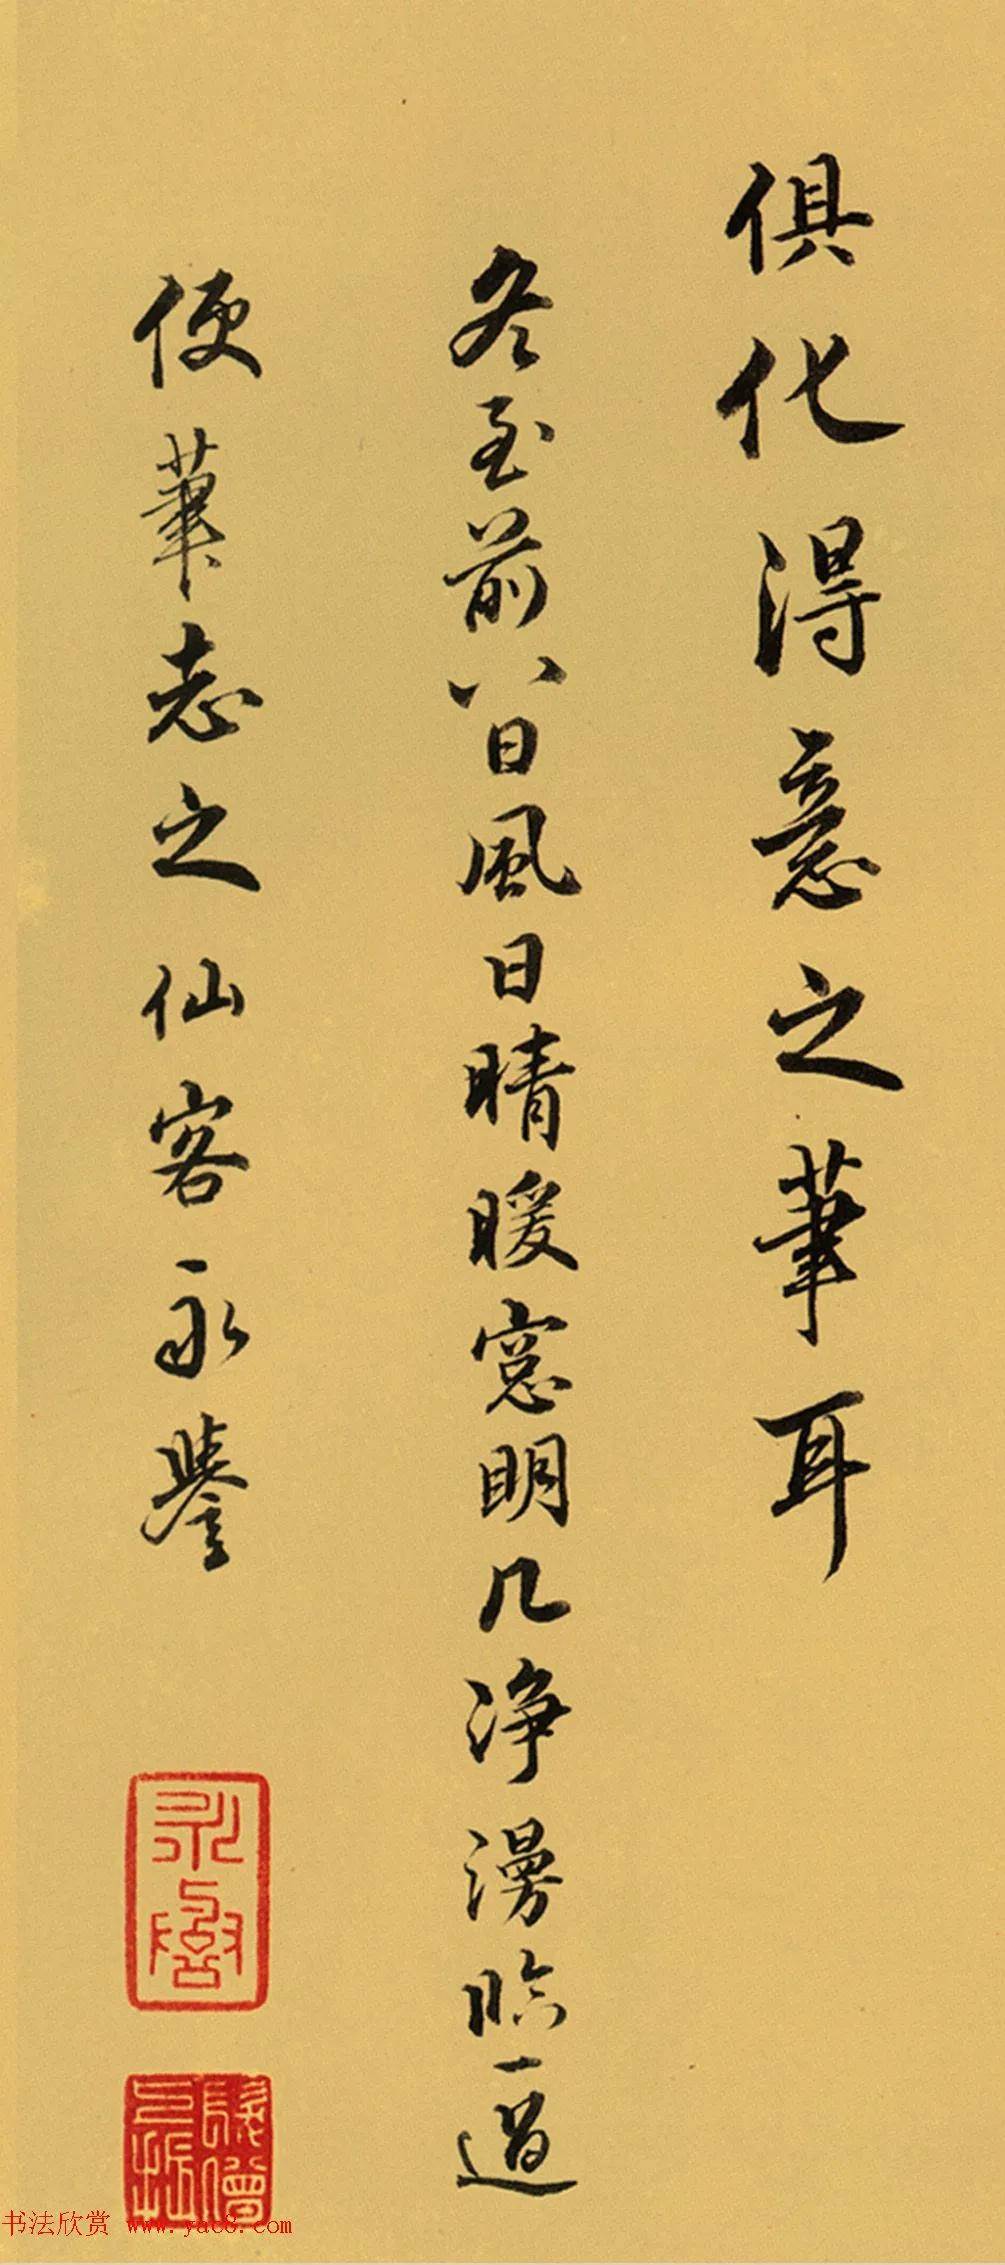 俱化得意之筆耳
冬至前八日風日晴暖窓明几浄漫臨一過
便筆志之仙客永譽
书法欣赏 www.yac8.com